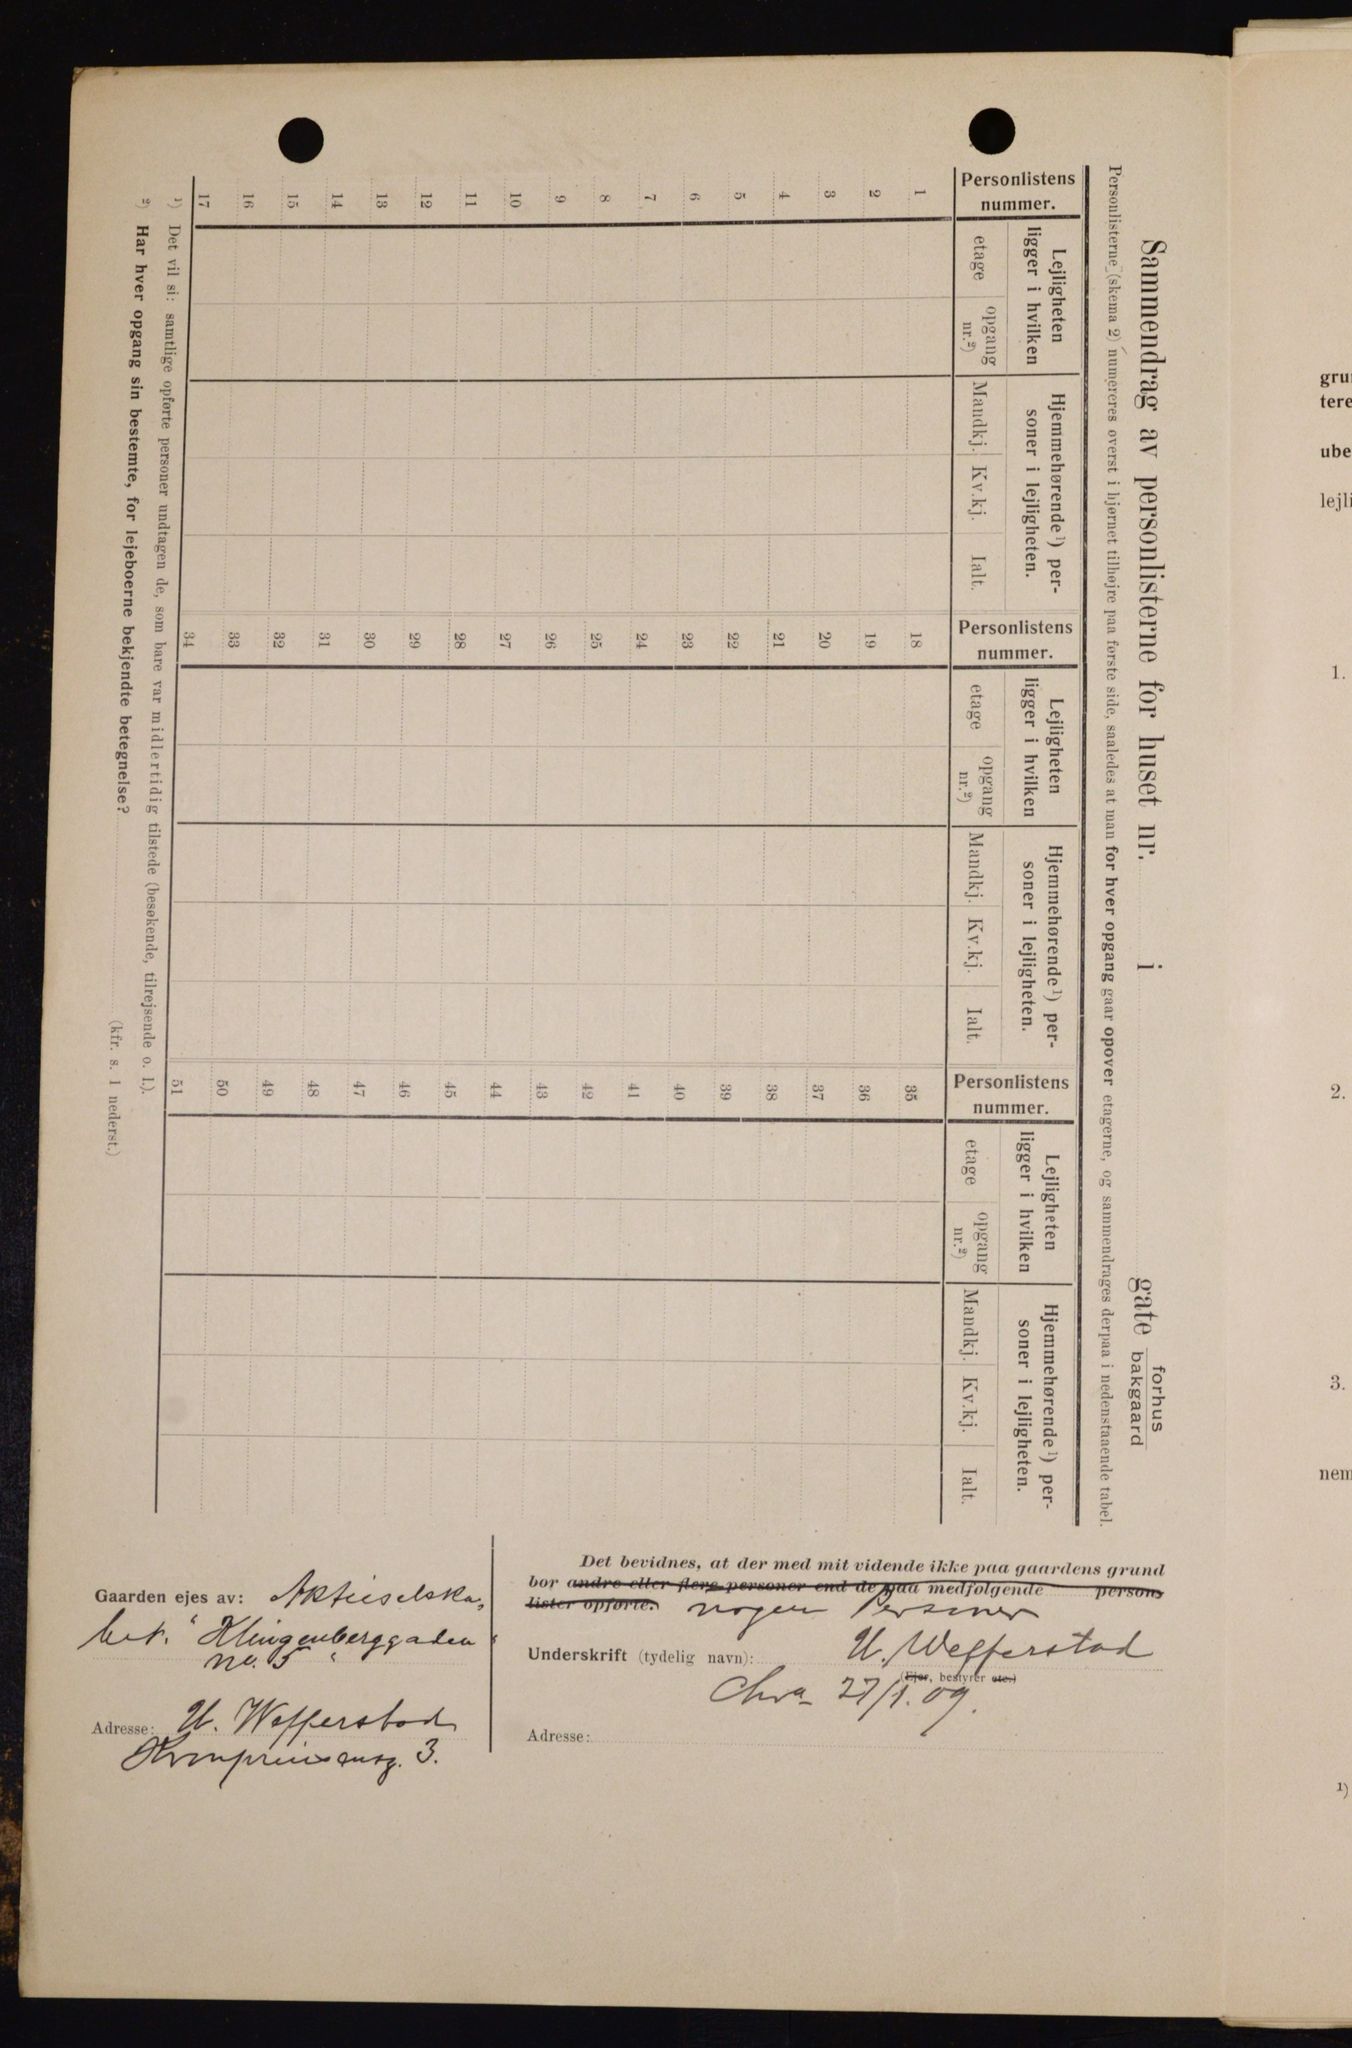 Sammendrag av personlisterne for huset nr. i gate forhus
bakgaard
Personlisterne (skema 2) numereres øverst i hjørnet tilhøjre paa første side, saaledes at man for hver opgang gaar opover etagerne, og sammendrages derpaa i nedenstaaende tabel.
Personlistens
nummer.
Lejligheten
ligger i hvilken
etage
opgang
nr.²)
Hjemmehørende¹) per-
soner i lejligheten.
Mandkj.
Kv.kj.
Ialt.
Personlistens
nummer.
Lejligheten
ligger i hvilken
etage
opgang
nr.²)
Hjemmehørende¹) per-
soner i lejligheten.
Mandkj.
Kv.kj.
Ialt.
Personlistens
nummer.
Lejligheten
ligger i hvilken
etage
opgang
nr.²)
Hjemmehørende¹) per-
soner i lejligheten.
Mandkj.
Kv.kj.
Ialt.
1 18 35
2 19 36
3 20 37
4 21 38
5 22 39
6 23 40
7 24 41
8 25 42
9 26 43
10 27 44
11 28 45
12 29 46
13 30 47
14 31 48
15 32 49
16 33 50
17 34 51
¹) Det vil si: samtlige opførte personer undtagen de, som bare var midlertidig tilstede (besøkende, tilrejsende o. l.).
²) Har hver opgang sin bestemte, for lejeboerne bekjendte betegnelse? (kfr. s. 1 nederst.)
Gaarden ejes av: Aktieselska-
bet. "Klingenberggaden
no. 5"
Adresse: U. Wefferstad
Kronprinsensg. 3.
Det bevidnes, at der med mit vidende ikke paa gaardens grund
bor andre eller flere personer end de paa medfølgende person-
lister opførte. nogen Personer
Underskrift (tydelig navn): U. Wefferstad
(Ejer, bestyrer etc.)
Chra 27/1. 09.
Adresse:
grun
tere
ube
lejli
1.
2.
3.
nem
¹)